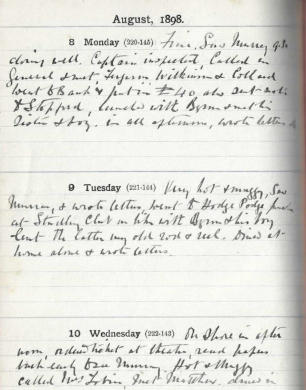 August, 1898.
8 Monday (220-145) Fine, Saw Murray 9.30
doing well. Captain inspected, Called on
General & met Ferguson, Wilkinson & Collard
Went to Bank & put in £40, also sent
to Stopford, lunched with Byrne met his
Sister & boy. in all afternoon, wrote letters
9 Tuesday (221-144) Very hot & muggy, Saw
Murray, & wrote letters, went to Hodge Podge
at Studley Club on bike with Byrne & his boy
lent the latter my old rod & reel. Dined at
home alone & wrote letters.
10 Wednesday (222-143) On Shore in after
noon, ordered ticket at theatre, read papers
early Saw Murray. Hot & Muggy
called Mrs met dined in